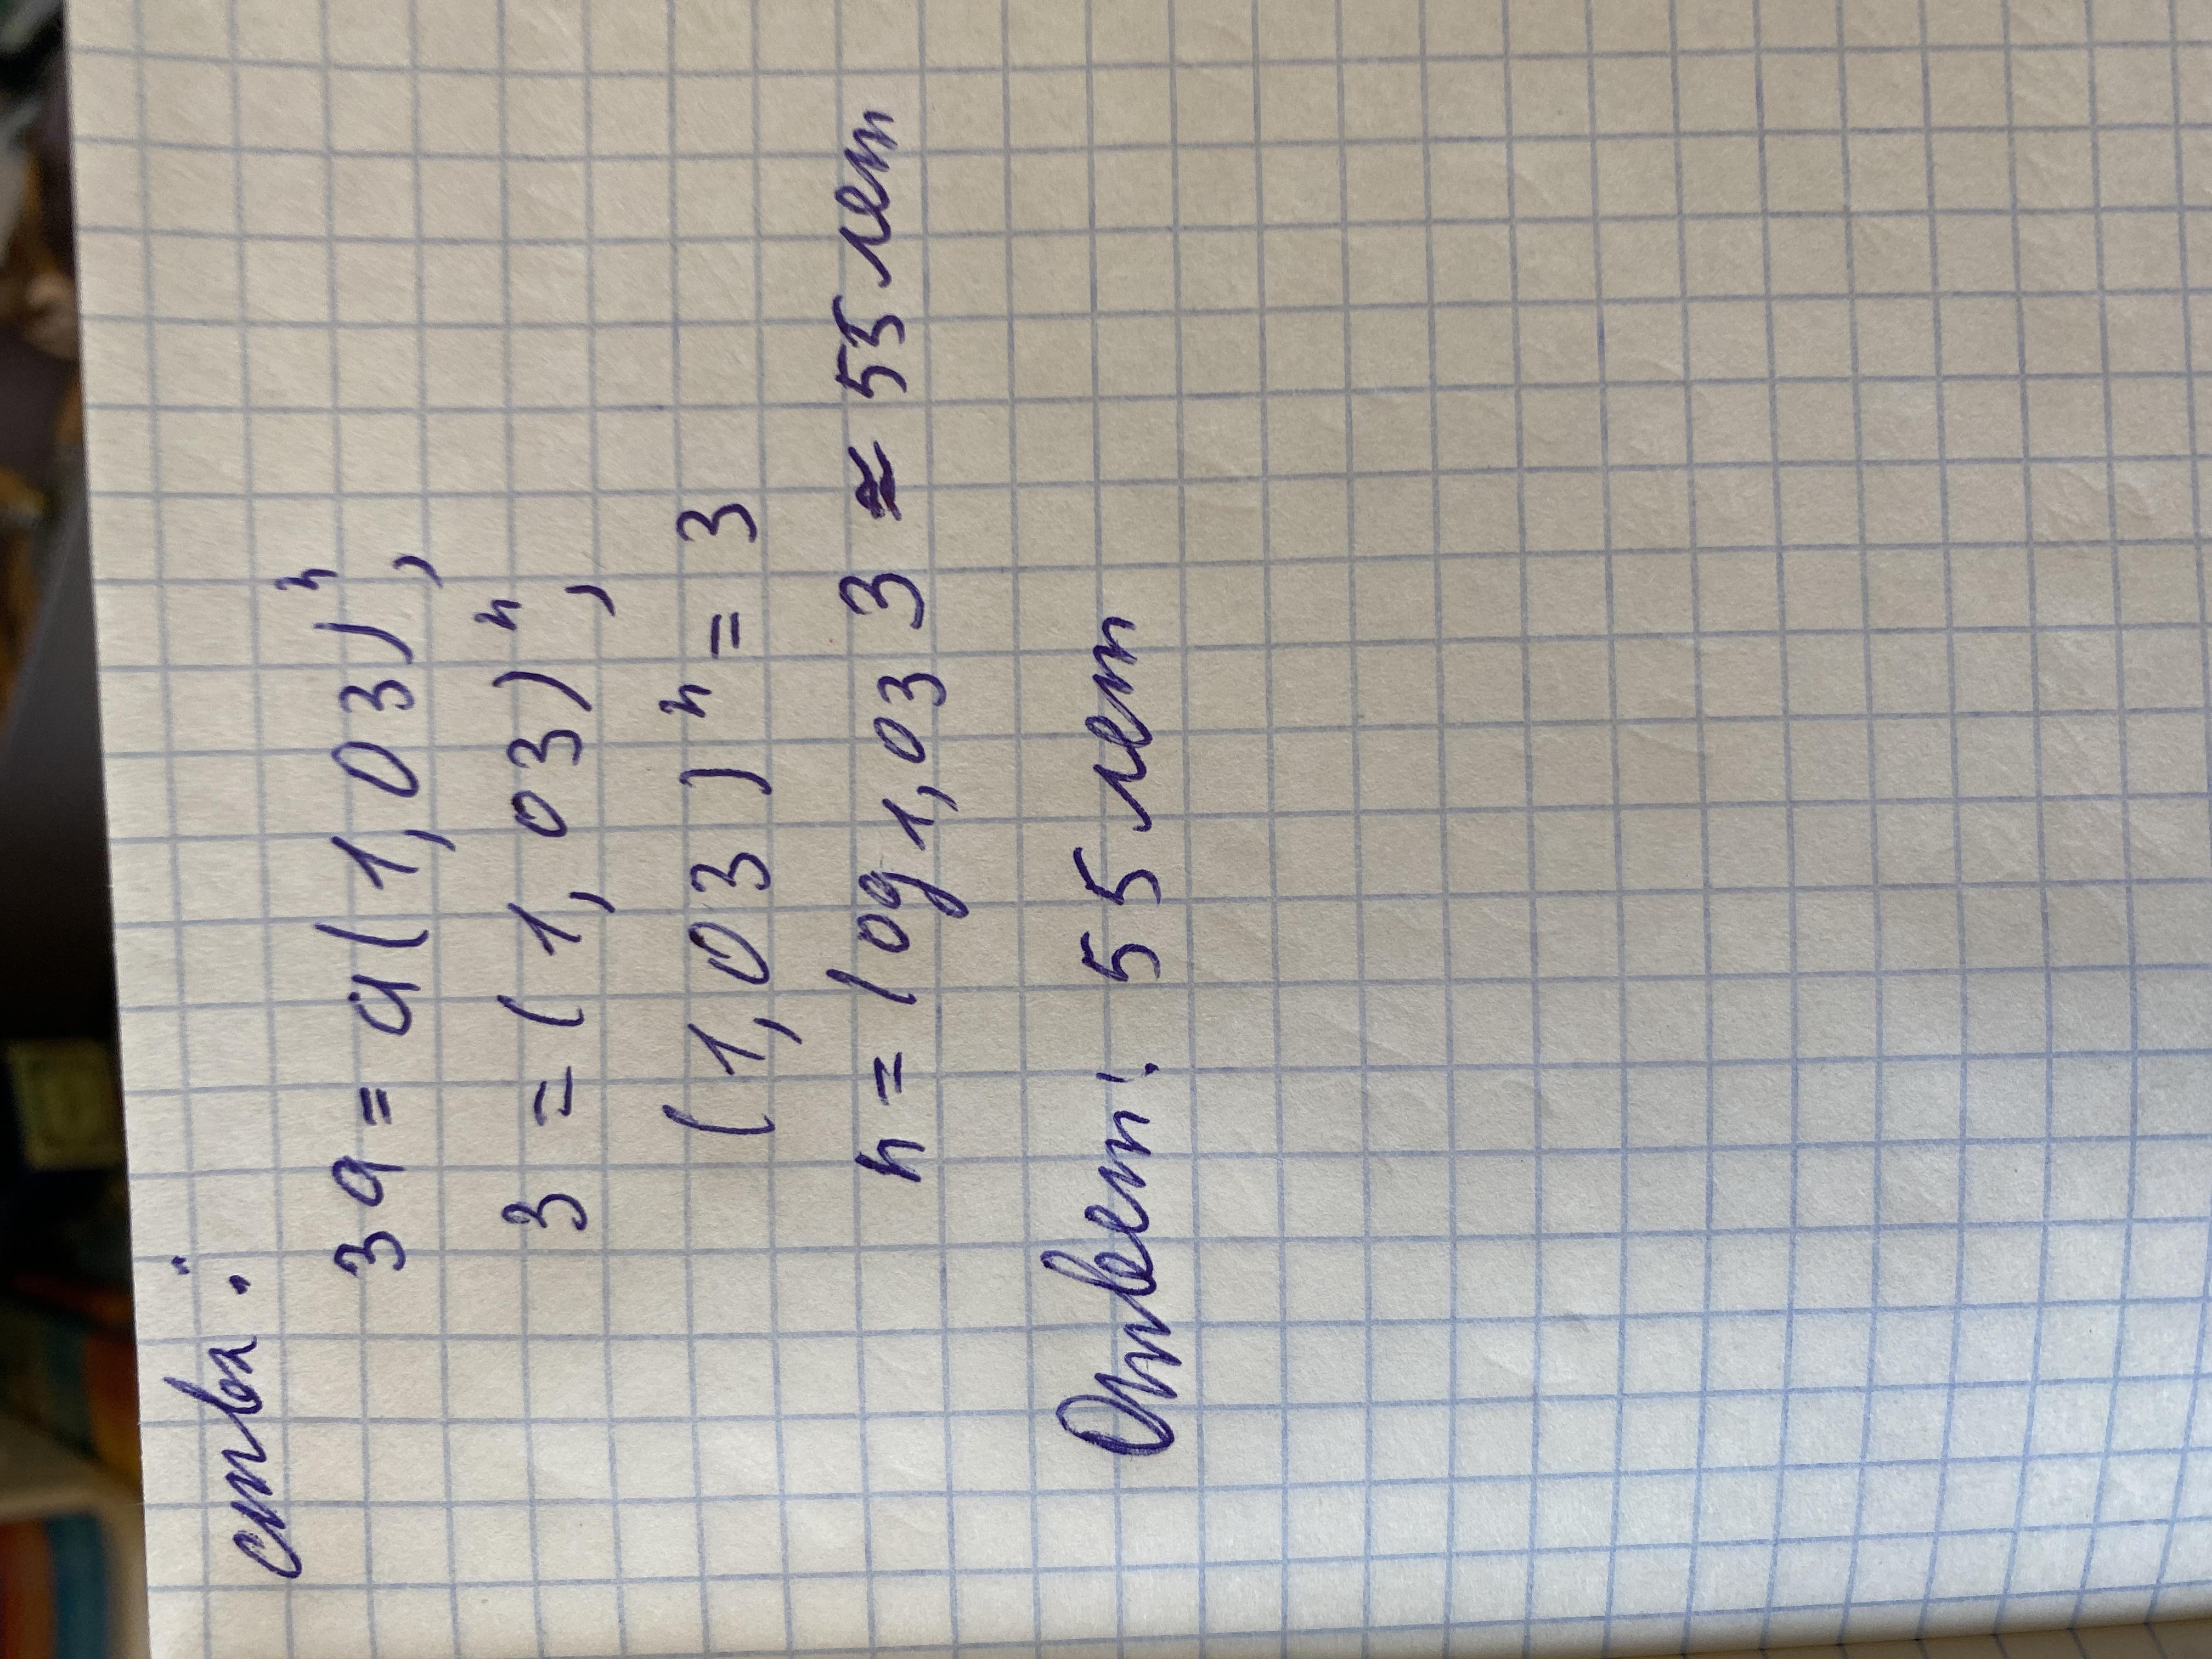 ства:
3a = a(1,03)ⁿ,
3 = (1,03)ⁿ,
(1,03)ⁿ = 3
n = log1,03 3 ≈ 55 лет
Ответ: 55 лет